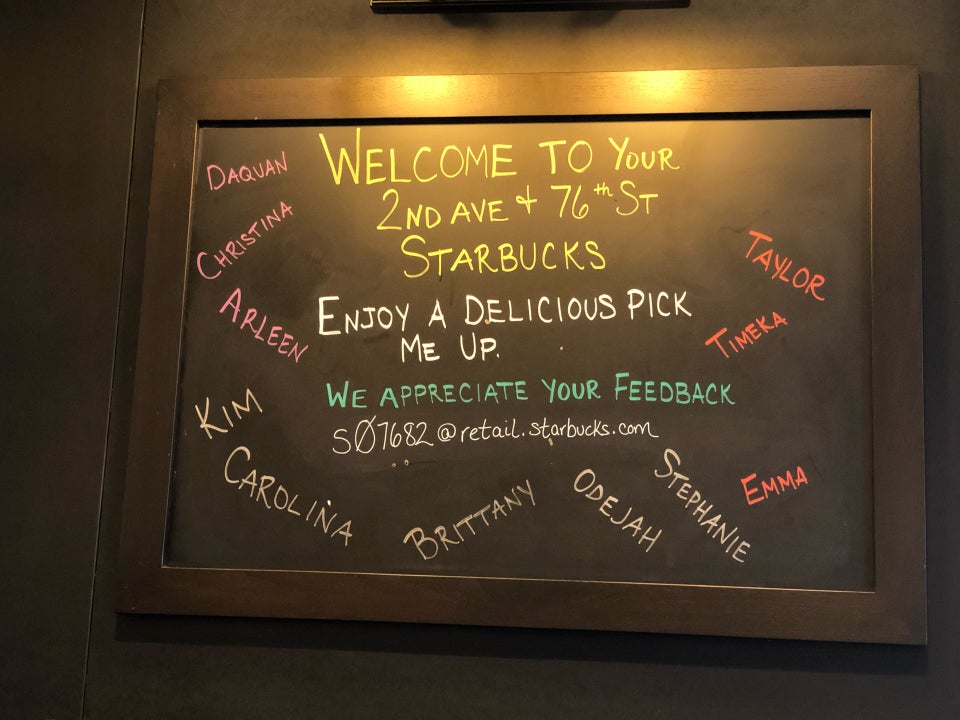 WELCOME TO YOUR
2ND AVE + 76th ST
STARBUCKS
ENJOY A DELICIOUS PICK
ME UP.
WE APPRECIATE YOUR FEEDBACK
sØ7682@retail.starbucks.com
DAQUAN
CHRISTINA
ARLEEN
KIM
CAROLINA
BRITTANY
ODEJAH
STEPHANIE
EMMA
TIMEKA
TAYLOR